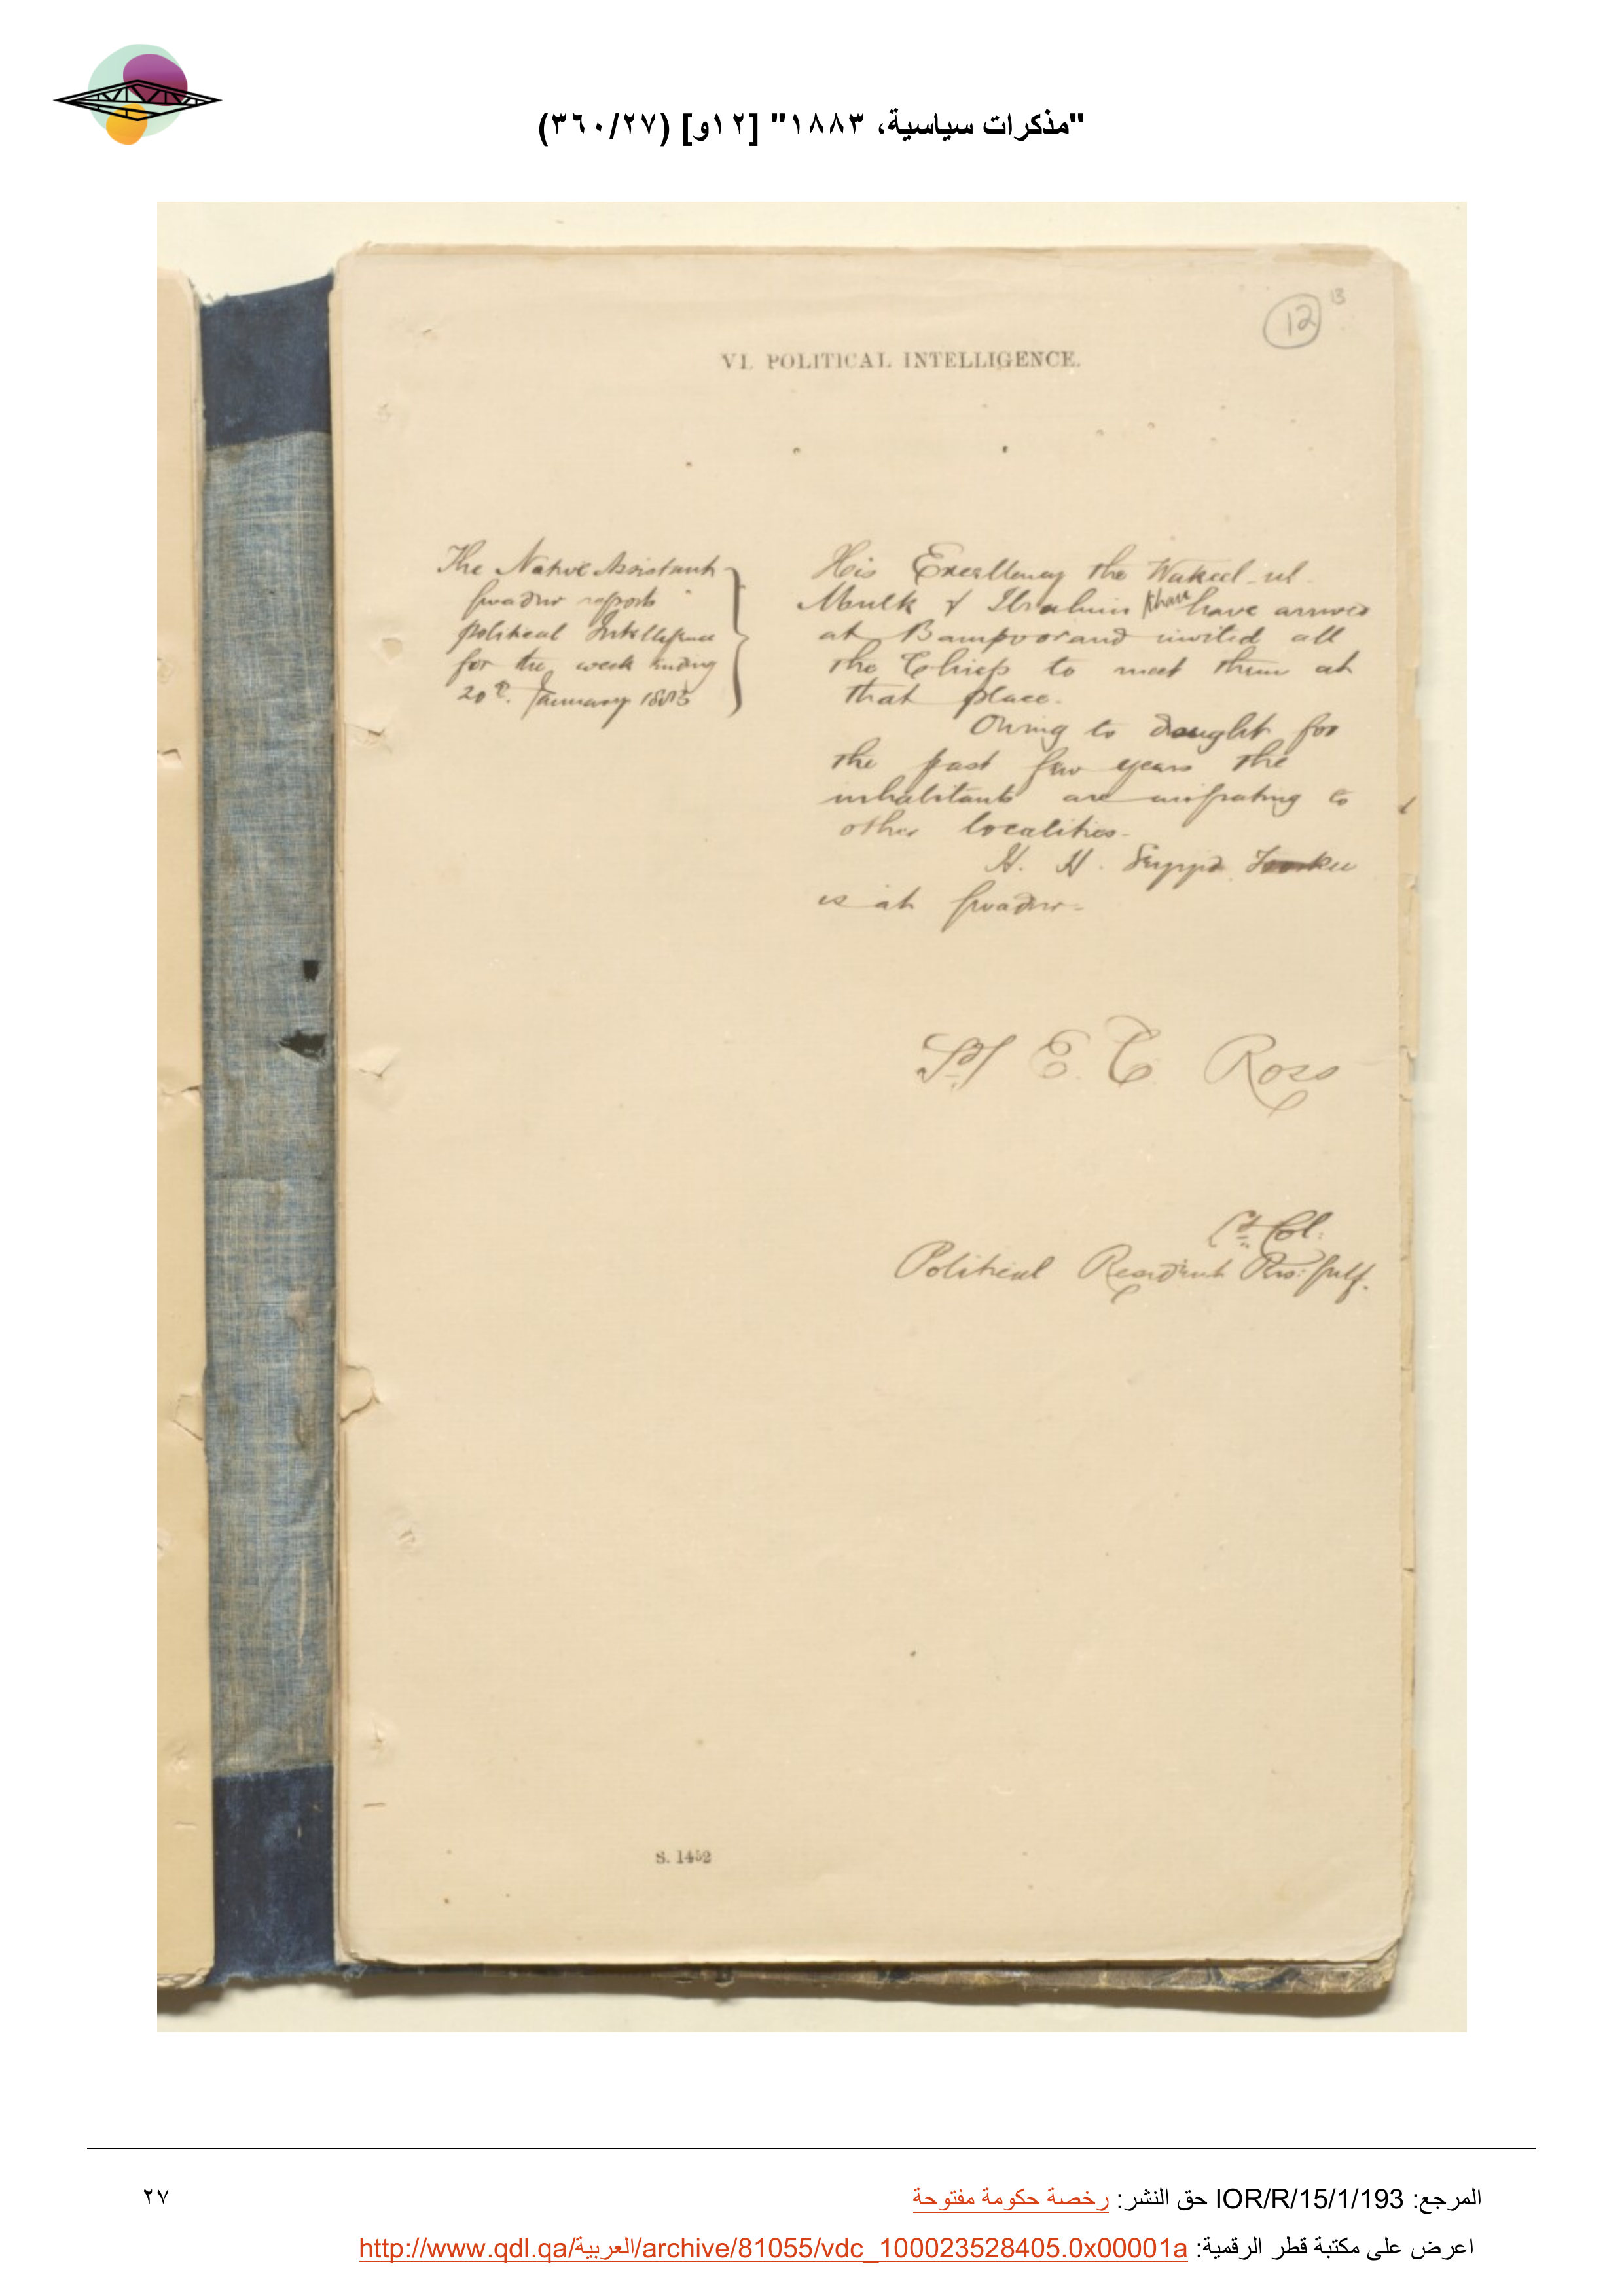 "مذكرات سياسية، ١٨٨٣" [١٢و] (٣٦٠/٢٧)
12
13
VI. POLITICAL INTELLIGENCE.
The Native Assistant
Gwadur reports
political Intelligence
for the week ending
20th. January 1883
His Excellency the Wakeel-ul-
Mulk & Ibrahim Khan have arrived
at Bampoor and invited all
the Chiefs to meet them at
that place.
Owing to drought for
the past few years the
inhabitants are migrating to
other localities.
H. H. Seyyid Toorkee
is at Gwadur.
Sd/ E. C. Ross
Lt. Col.
Political Resident Pers: Gulf.
S. 1452
المرجع: IOR/R/15/1/193 حق النشر: رخصة حكومة مفتوحة
٢٧
اعرض على مكتبة قطر الرقمية: http://www.qdl.qa/العربية/archive/81055/vdc_100023528405.0x00001a